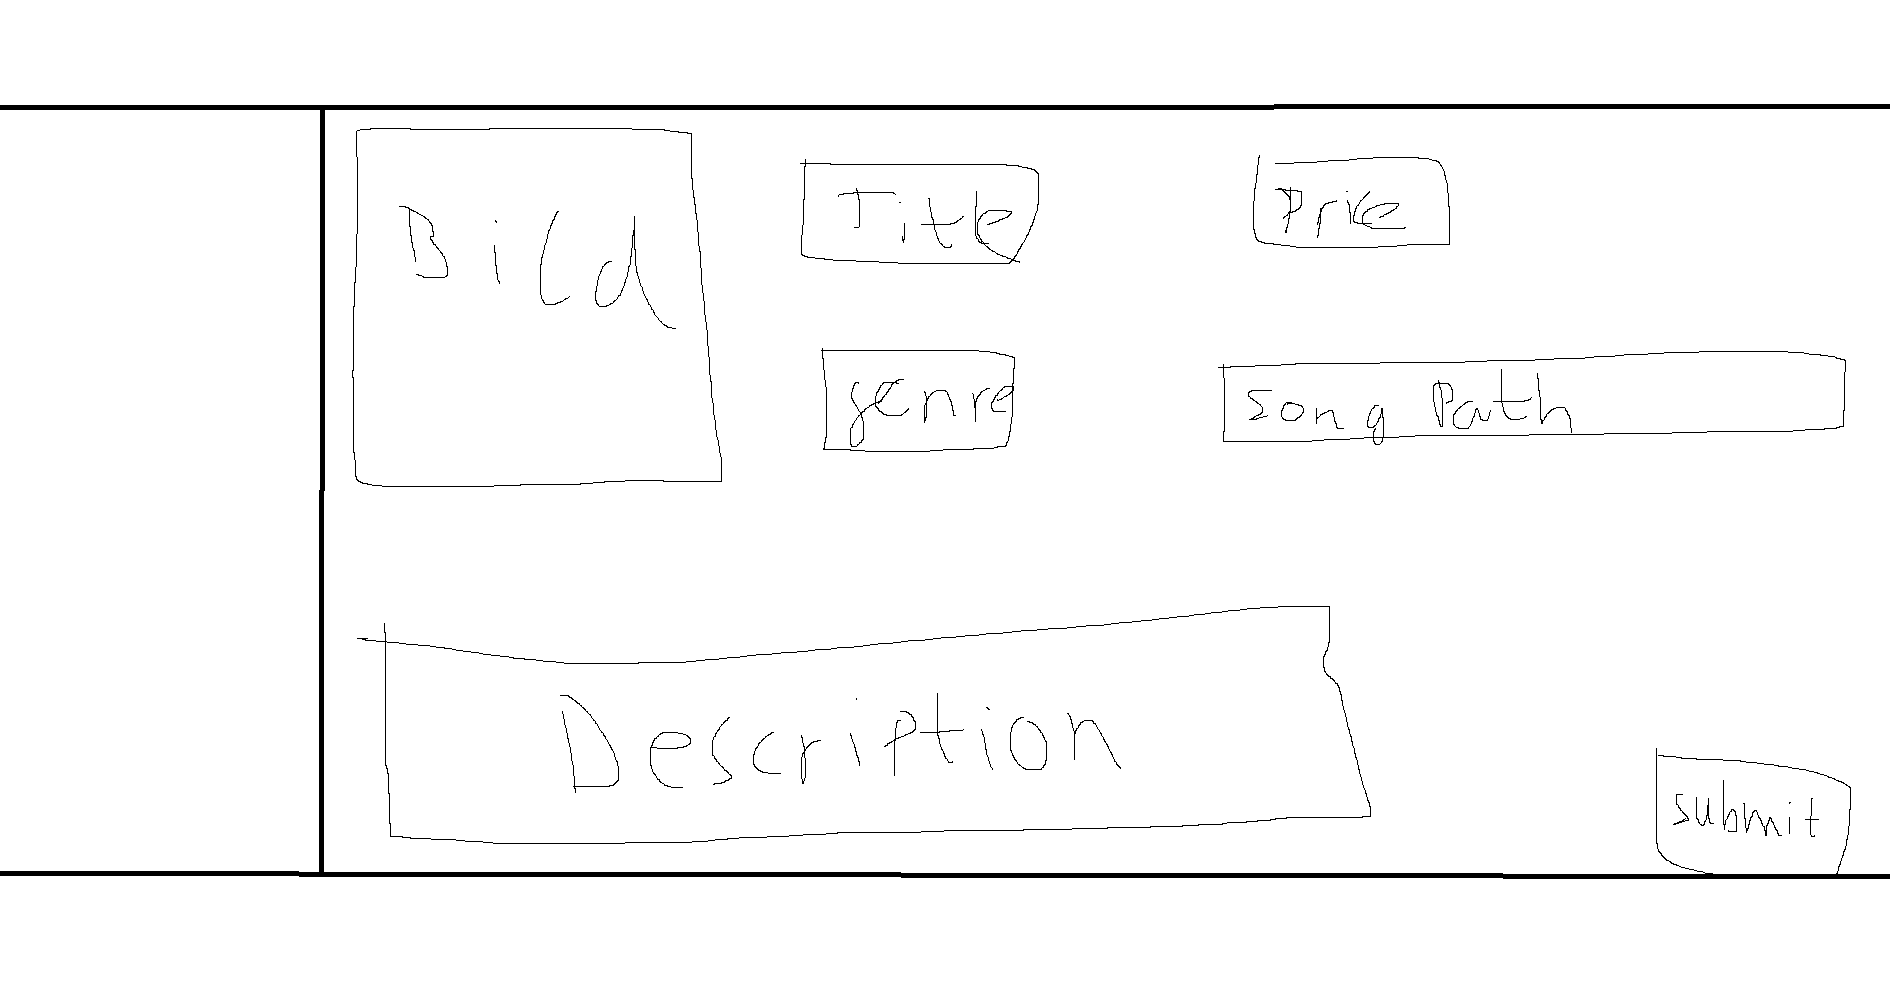 Bild
Title
Price
genre
Song Path
Description
submit